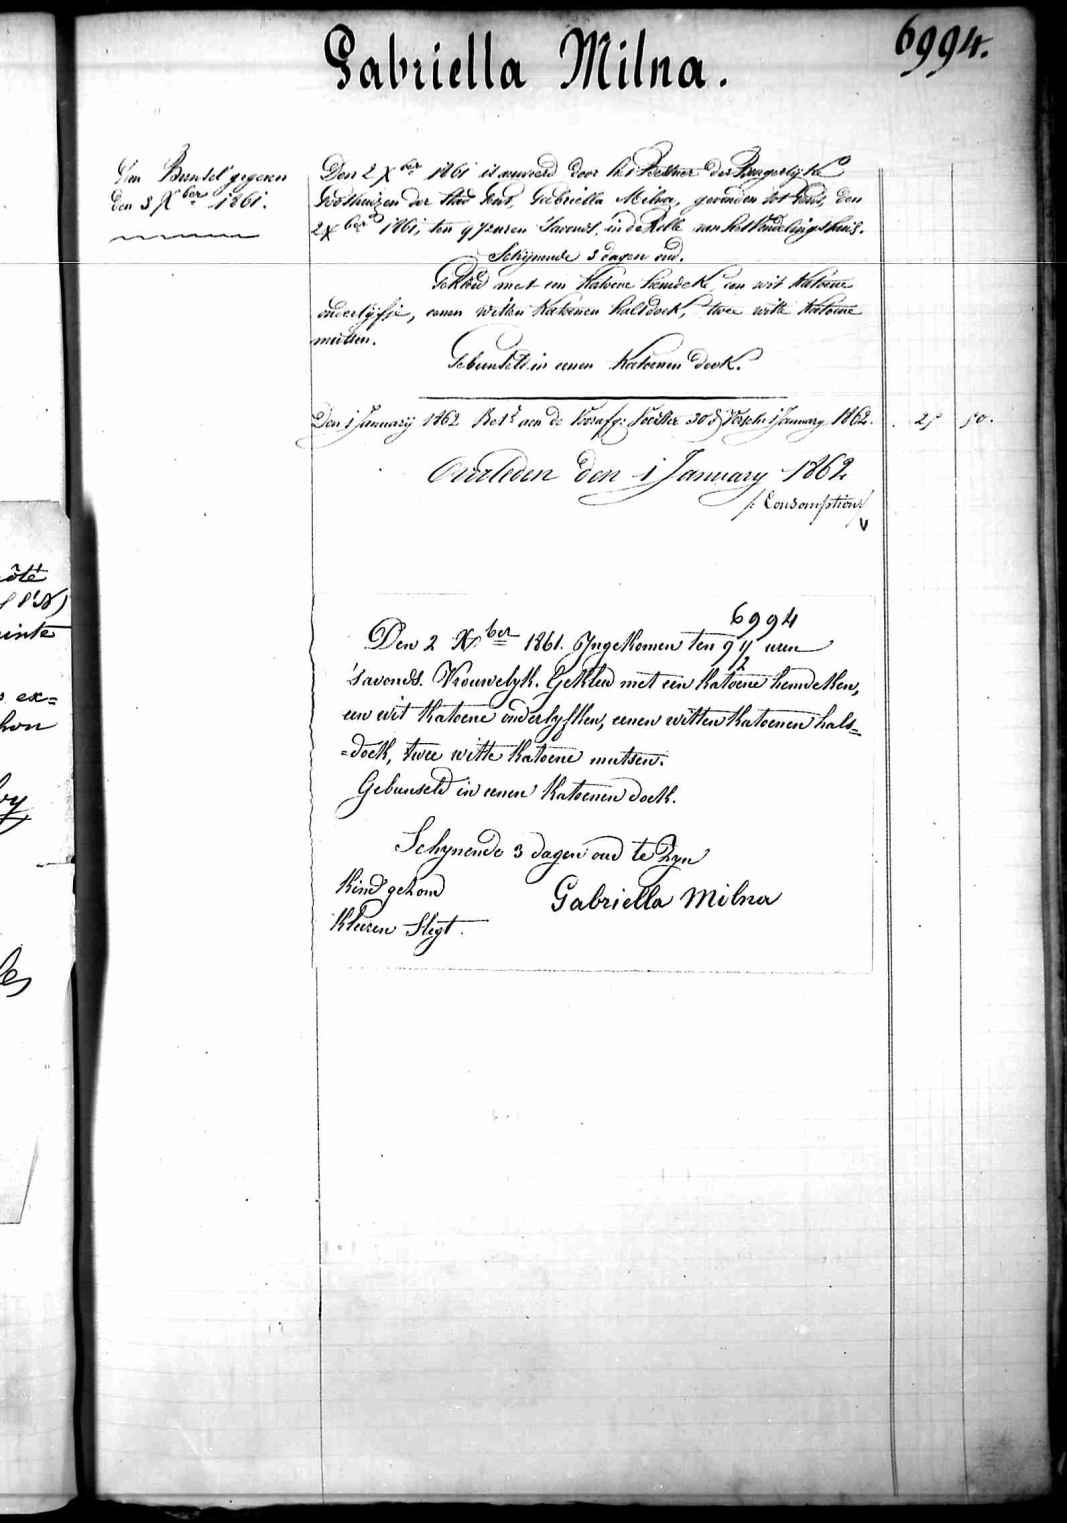 Gabriella Milna.
6994.
Een Bunsel gegeven
den 3 Xber 1861.
Den 2 Xber 1861 is aenveerd door het Bestuer der Burgerlyke
Godshuizen der stad Gent, Gabriella Milna, gevonden tot Gent, den
2 Xber 1861, ten 9½ uren 'savonds, in de Rolle van het Vondelingshuis.
Schijnende 3 dagen oud.
Gekleed met een katoene hemdeke, een wit katoene
onderlijfje, eenen witten katoenen halsdoek, twee witte katoene
mutsen.
Gebunseld in eenen katoenen doek.
Den 1 January 1862 Bet. aen de 30 d. 1 January 1862. 25 50.
Overleden den 1 January 1862
/: Consomption :/
6994
Den 2 Xber 1861. Ingekomen ten 9½ uren
'savonds. Vrouwelyk. Gekleed met een katoene hemdeken,
een wit katoene onderlyfken, eenen witten katoenen hals=
=doek, twee witte katoene mutsen.
Gebunseld in eenen katoenen doek.
Schynende 3 dagen oud te Zyn
Kind gezond
Gabriella Milna
Kleeren slegt.
ôté
ainte
ex=